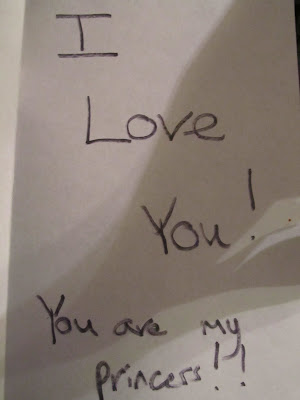 I
Love
You!
You are my
princess!!